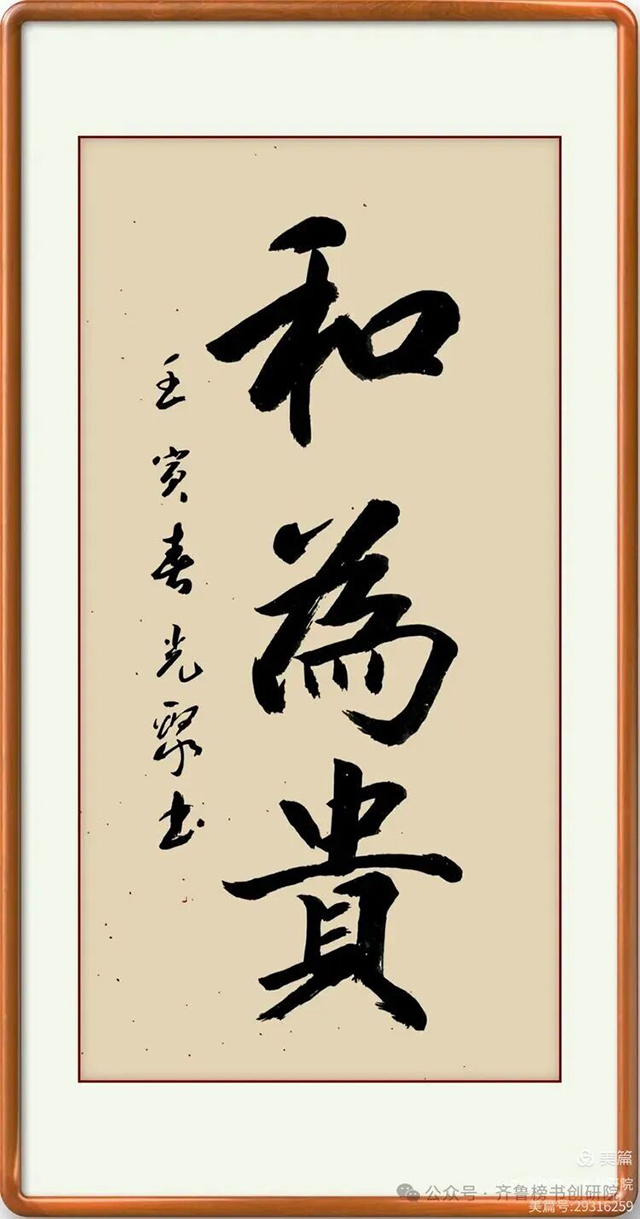 和為貴
壬寅春光聚书
美篇
公众号·齐鲁榜书创研院
院
美篇号:29316259